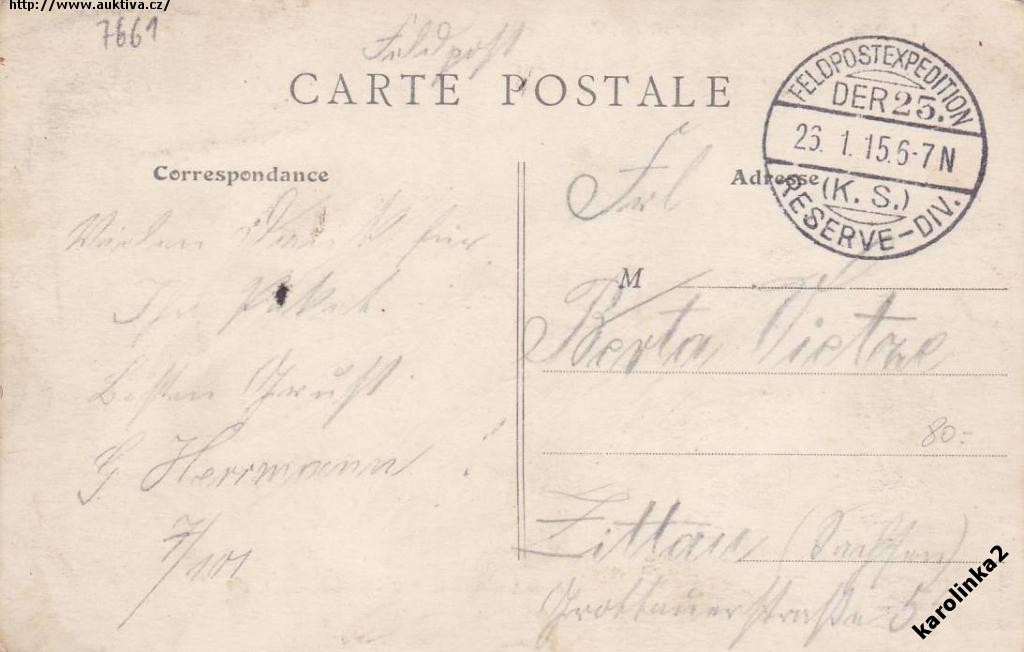 http://www.auktiva.cz/
7661
Feldpost
CARTE POSTALE
FELDPOSTEXPEDITION
DER 25.
26. 1. 15. 6-7 N
(K. S.)
RESERVE-DIV.
Correspondance
Vielen Dank für
Ihr Paket.
Besten Gruß
G. Herrmann
7/101
Adresse
Frl
M
Berta Vietze
80.-
Zittau (Sachsen)
Grottauerstraße 5
karolinka2